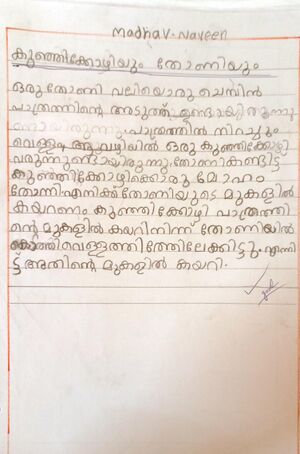 Madhav-Naveen
കുഞ്ഞിക്കോഴിയും തോണിയും
ഒരു തോണി വലിയൊരു ചെമ്പിൻ
പാത്രത്തിന്റെ അടുത്ത് ഉണ്ടായിരുന്നു
ണായിരുന്നു. പാത്രത്തിൽ നിറച്ചും
വെള്ളം ആ വഴിയിൽ ഒരു കുഞ്ഞിക്കോഴി
വരുന്നുണ്ടായിരുന്നു. തോണി കണ്ടിട്ട്
കുഞ്ഞിക്കോഴിക്കൊരു മോഹം
തോന്നി എനിക്ക് തോണിയുടെ മുകളിൽ
കയറണം. കുഞ്ഞിക്കോഴി പാത്രത്തി
ന്റെ മുകളിൽ കയറി നിന്ന് തോണിയിൽ
കൊത്തി വെള്ളത്തിത്തിലേക്കിട്ടും. എന്നി
ട്ട് അതിന്റെ മുകളിൽ കയറി.